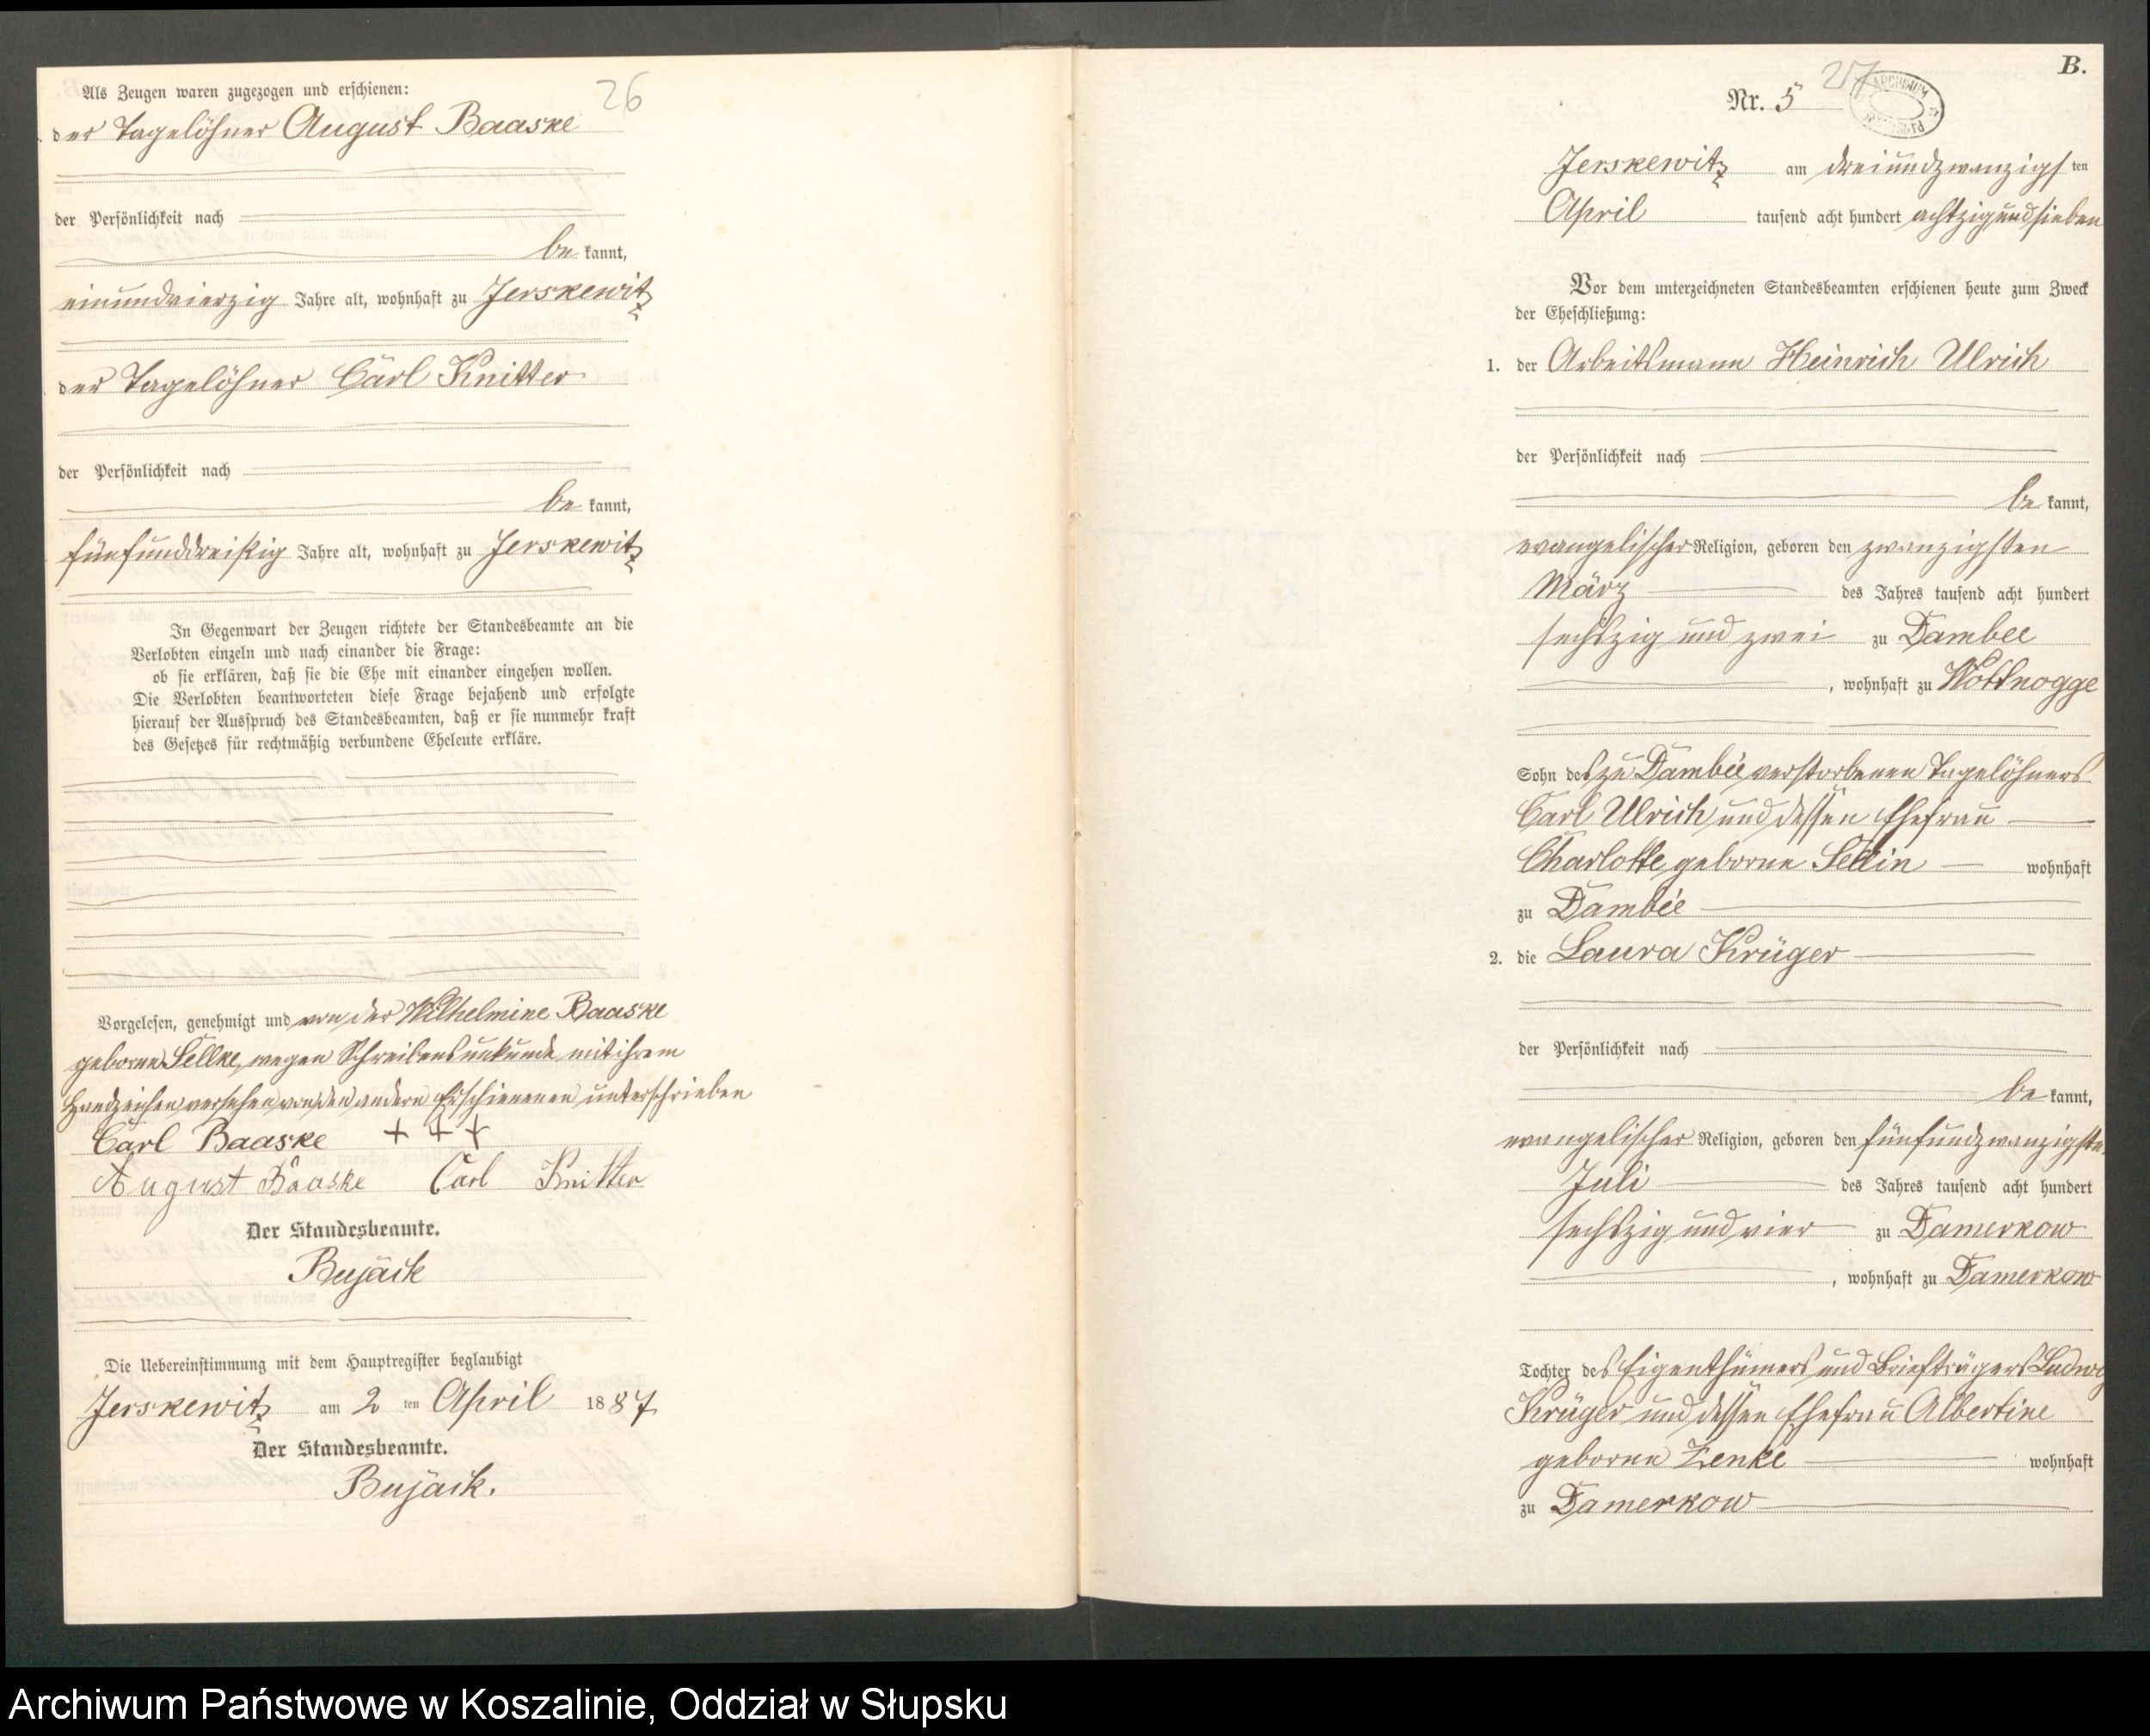 Als Zeugen waren zugezogen und erschienen:
26
der Tagelöhner August Baaske
der Persönlichkeit nach
be kannt,
einundvierzig Jahre alt, wohnhaft zu Jerskewitz
der Tagelöhner Carl Knitter
der Persönlichkeit nach
be kannt,
fünfunddreißig Jahre alt, wohnhaft zu Jerskewitz
In Gegenwart der Zeugen richtete der Standesbeamte an die
Verlobten einzeln und nach einander die Frage:
ob sie erklären, daß sie die Ehe mit einander eingehen wollen.
Die Verlobten beantworteten diese Frage bejahend und erfolgte
hierauf der Ausspruch des Standesbeamten, daß er sie nunmehr kraft
des Gesetzes für rechtmäßig verbundene Eheleute erkläre.
Vorgelesen, genehmigt und von der Wilhelmine Baaske
geborne Sellke, wegen Schreibensunkunde mit ihrem
Handzeichen versehen von den andern Erschienenen unterschrieben
Carl Baaske + + +
August Baaske Carl Knitter
Der Standesbeamte.
Bujack
Die Uebereinstimmung mit dem Hauptregister beglaubigt
Jerskewitz am 2 ten April 1887
Der Standesbeamte.
Bujack.
B.
27
Nr. 5
ARCHIWUM
Jerskewitz am dreiundzwanzigsten
April tausend acht hundert achtzig und sieben
Vor dem unterzeichneten Standesbeamten erschienen heute zum Zweck
der Eheschließung:
1. der Arbeitsmann Heinrich Ulrich
der Persönlichkeit nach
be kannt,
evangelischer Religion, geboren den zwanzigsten
März des Jahres tausend acht hundert
sechszig und zwei zu Dambee
, wohnhaft zu Wottnogge
Sohn des zu Dambée verstorbenen Tagelöhners
Carl Ulrich und dessen Ehefrau
Charlotte geborne Sellin wohnhaft
zu Dambée
2. die Laura Krüger
der Persönlichkeit nach
be kannt,
evangelischer Religion, geboren den fünfundzwanzigsten
Juli des Jahres tausend acht hundert
sechszig und vier zu Damerkow
, wohnhaft zu Damerkow
Tochter des Eigenthümers und Briefträgers Ludwig
Krüger und dessen Ehefrau Albertine
geborne Zenke wohnhaft
zu Damerkow
Archiwum Państwowe w Koszalinie, Oddział w Słupsku